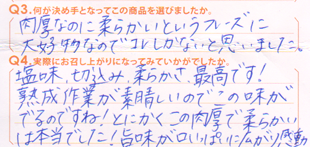 Q3.何が決め手となってこの商品を選びましたか。
肉厚なのに柔らかいというフレーズに
大好物なのでコレしかないと思いました。
Q4.実際にお召し上がりになってみていかがでしたか。
塩味、切込み、柔らかさ、最高です!
熟成作業が素晴しいのでこの味が
でるのですね!とにかくこの肉厚で柔らかい
は本当でした!旨味が口いっぱいに広がり感動